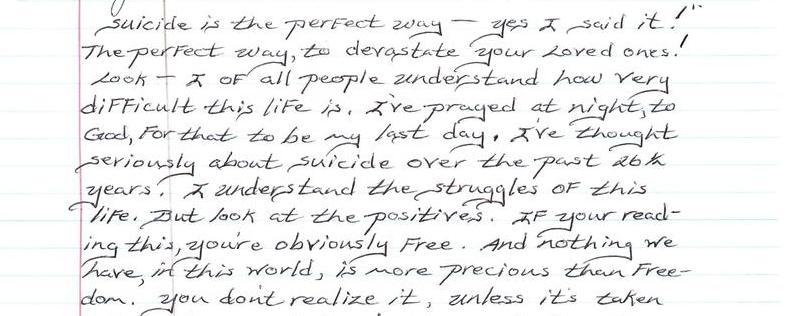 suicide is the perfect way — yes I said it!"
The perfect way, to devastate your loved ones!
Look — I of all people understand how very
difficult this life is. I've prayed at night, to
God, for that to be my last day. I've thought
seriously about suicide over the past 26½
years. I understand the struggles of this
life. But look at the positives. If your read-
ing this, you're obviously free. And nothing we
have, in this world, is more precious than free-
dom. You don't realize it, unless it's taken